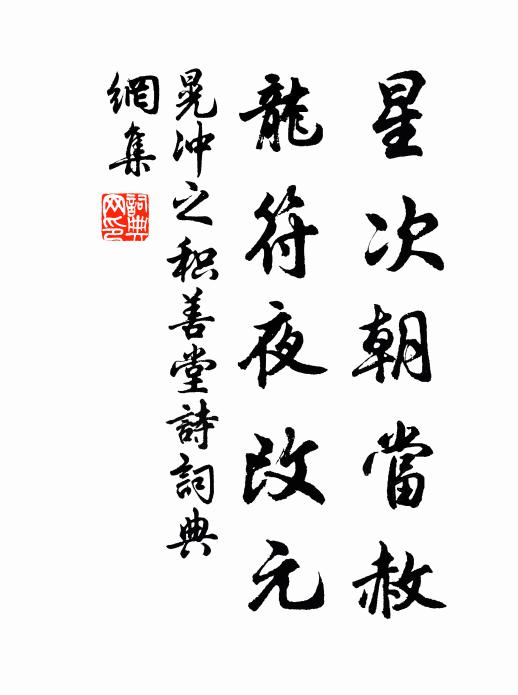 星次朝當赦
龍符夜改元
晃沖之积善堂詩詞典
網集
詞典
网印